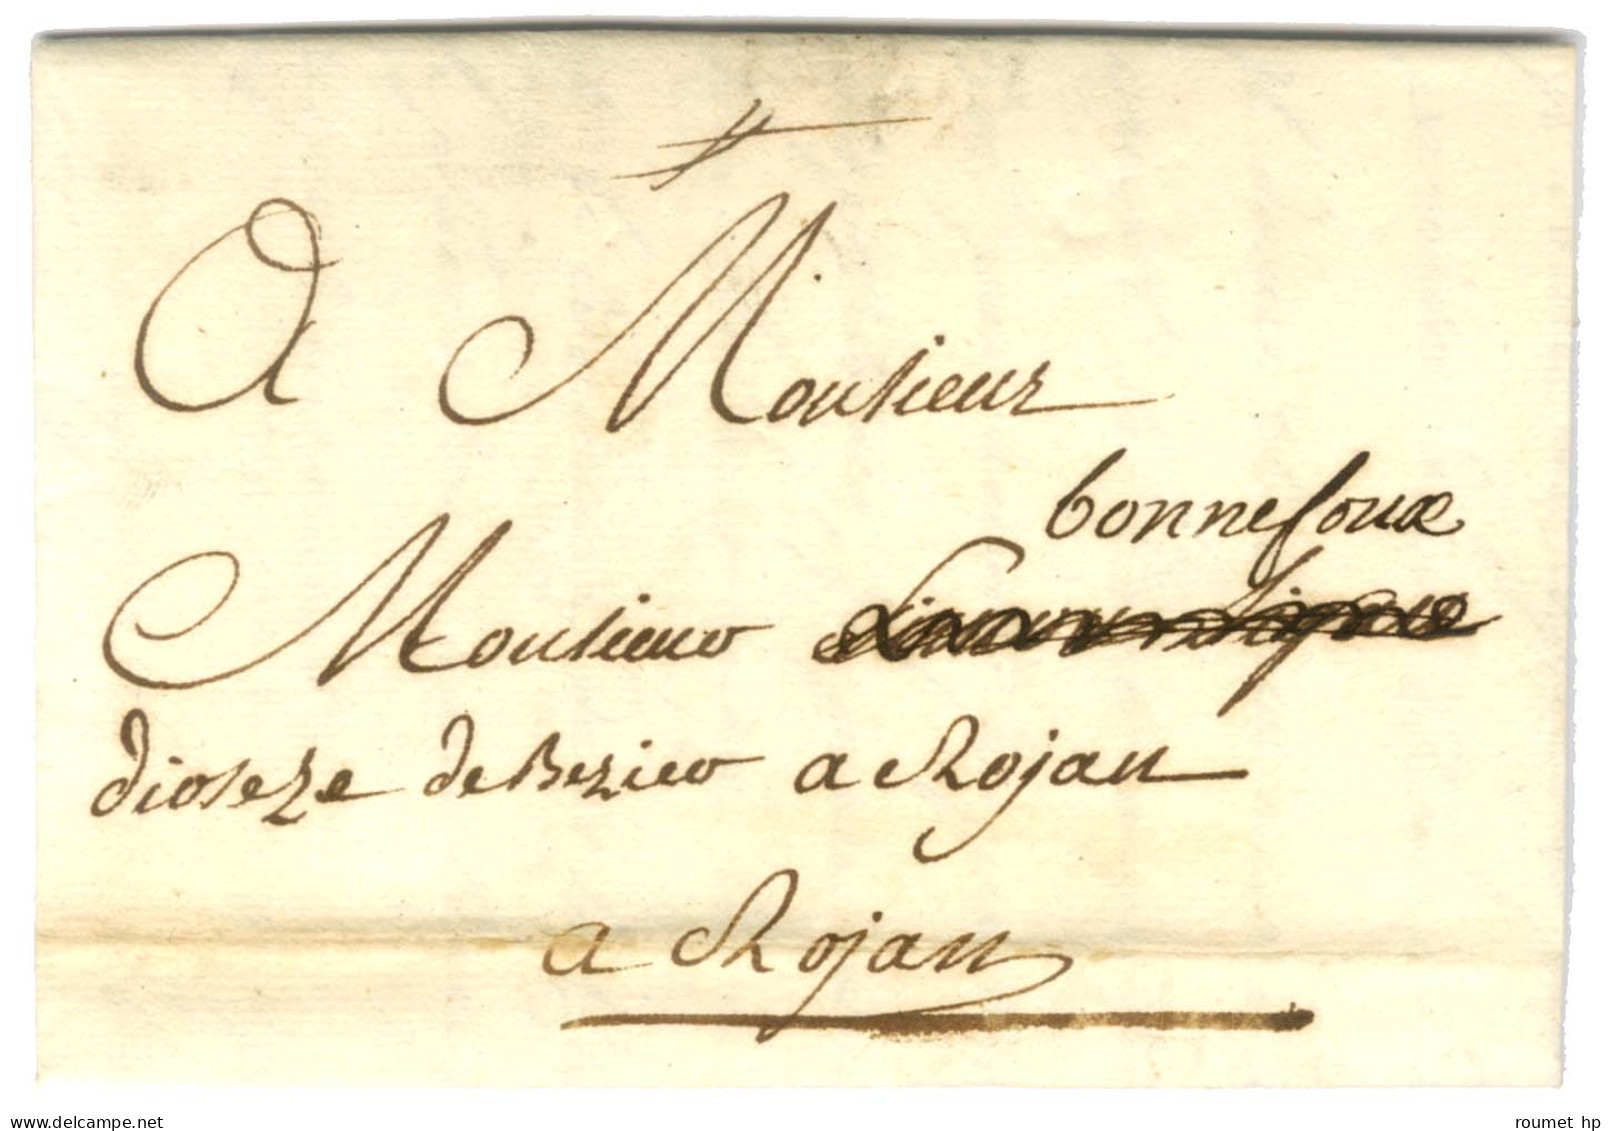 A Monsieur
bonnefoux
Monsieur
dioseze de Bezier a Rojan
a Rojan
delcampe.net
roumet hp